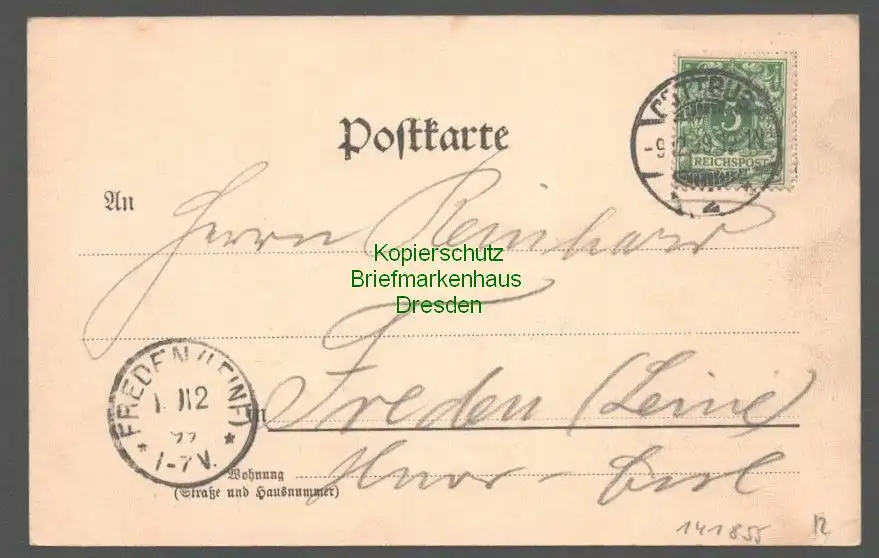 Postkarte
COTTBUS
-9.12.99.
2
5
REICHSPOST
An
Herrn Reinhard
Kopierschutz
Briefmarkenhaus
Dresden
Freden (Leine)
FREDEN (LEINE)
12
99
1-7V.
in
Wohnung
(Straße und Hausnummer)
141855